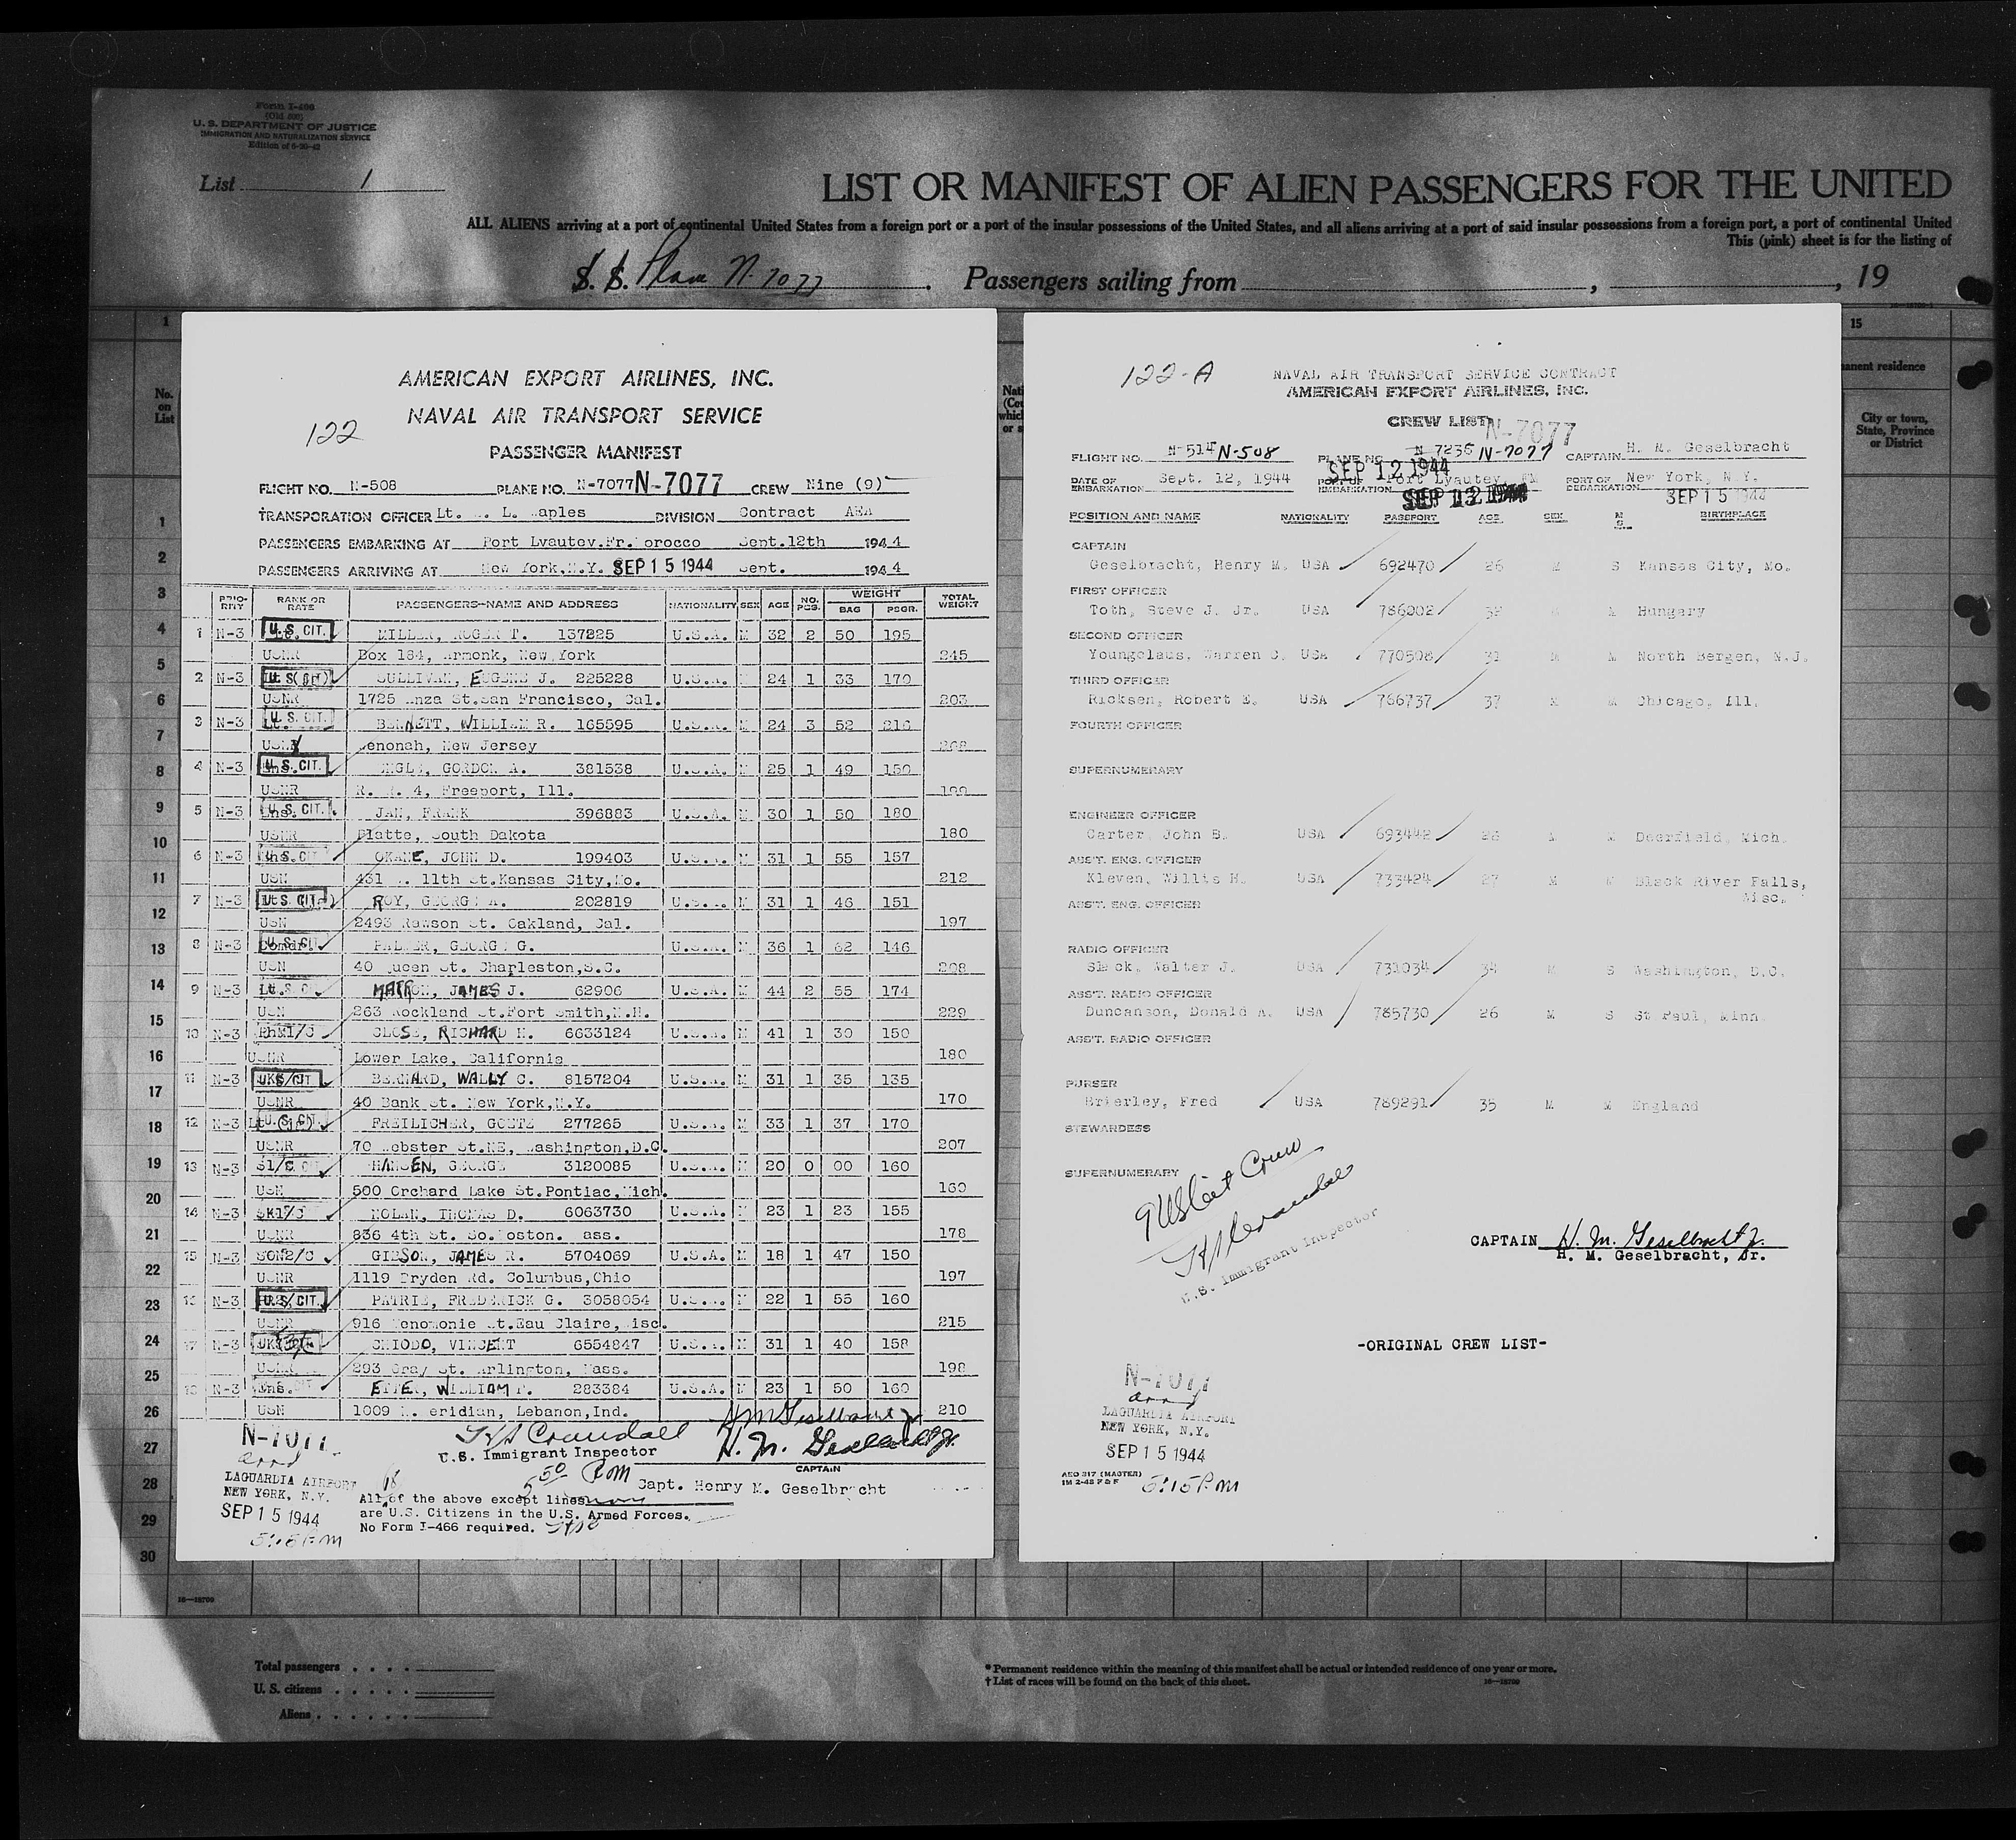 Form I-466
(Old 500)
U. S. DEPARTMENT OF JUSTICE
IMMIGRATION AND NATURALIZATION SERVICE
List 1
LIST OR MANIFEST OF ALIEN PASSENGERS FOR THE UNITED
ALL ALIENS arriving at a port of continental United States from a foreign port or a port of the insular possessions of the United States, and all aliens arriving at a port of said insular possessions from a foreign port, a port of continental United
This (pink) sheet is for the listing of
S. S. Plane N-7077. Passengers sailing from , , 19
No. on List
15
City or town, State, Province or District
122
AMERICAN EXPORT AIRLINES, INC.
NAVAL AIR TRANSPORT SERVICE
PASSENGER MANIFEST
FLIGHT NO. N-508 PLANE NO. N-7077 N-7077 CREW Nine (9)
TRANSPORATION OFFICER Lt. L. DIVISION Contract AEA
PASSENGERS EMBARKING AT Port Lyautey.Fr. orocco Sept.12th 1944
PASSENGERS ARRIVING AT New York,N.Y. SEP 15 1944 Sept. 1944
PRIO-RITY RANK OR RATE PASSENGERS-NAME AND ADDRESS NATIONALITY SEX AGE NO. PCS. WEIGHT BAG PSGR. TOTAL WEIGHT
1 N-3 U.S. CIT. MILLER, ROGER T. 137825 U.S.A. M 32 2 50 195
USNR Box 184, Armonk, New York 245
2 N-3 SULLIVAN, EUGENE J. 225228 U.S.A. M 24 1 33 170
USNR 1725 Anza St.San Francisco, Cal. 203
3 N-3 U.S. CIT. BENNETT, WILLIAM R. 165595 U.S.A. M 24 3 52 216
Wenonah, New Jersey 268
4 N-3 U.S. CIT. ENGLE, GORDON A. 381538 U.S.A. M 25 1 49 150
USNR R. R. 4, Freeport, Ill. 199
5 N-3 U.S. CIT. JAN, FRANK 396883 U.S.A. M 30 1 50 180
USNR Platte, South Dakota 180
6 N-3 OKANE, JOHN D. 199403 U.S.A. M 31 1 55 157
USN 431 11th St.Kansas City,Mo. 212
7 N-3 ROY, GEORGE A. 202819 U.S.A. M 31 1 46 151
USN 2493 Rawson St. Oakland, Cal. 197
8 N-3 Comdr. PALMER, GEORGE G. U.S.A. M 36 1 62 146
USN 40 Queen St. Charleston,S.C. 208
9 N-3 Lt. JAMES J. 62906 U.S.A. M 44 2 55 174
USN 263 Rockland St.Port Smith,N.H. 229
10 N-3 PhM1/C CLOSE, RICHARD H. 6633124 U.S.A. M 41 1 30 150
USNR Lower Lake, California 180
11 N-3 BERNARD, WALLY C. 8157204 U.S.A. M 31 1 35 135
USNR 40 Bank St. New York,N.Y. 170
12 N-3 U.S. CIT. FREILICHER, GOETZ 277265 U.S.A. M 33 1 37 170
USNR 70 Webster St.NE, Washington,D.C. 207
13 N-3 S1/C HANSEN, GEORGE 3120085 U.S.A. M 20 0 00 160
USN 500 Orchard Lake St.Pontiac,Mich. 160
14 N-3 SK1/C NOLAN, THOMAS D. 6063730 U.S.A. M 23 1 23 155
USNR 836 4th St. So.Boston. Mass. 178
15 N-3 SOM2/C GIBSON, JAMES R. 5704069 U.S.A. M 18 1 47 150
USNR 1119 Dryden Rd. Columbus,Ohio 197
16 N-3 U.S. CIT. PATRIE, FREDERICK G. 3058054 U.S.A. M 22 1 55 160
USNR 916 Menomonie St.Eau Claire,Wisc. 215
17 N-3 CHIODO, VINCENT 6554847 U.S.A. M 31 1 40 158
USNR 293 Gray St. Arlington, Mass. 198
18 N-3 Ens. WILLIAM F. 283384 U.S.A. M 23 1 50 160
USN 1009 N. Meridian, Lebanon,Ind. 210
N-7077
arrd
LAGUARDIA AIRPORT
NEW YORK, N.Y.
SEP 15 1944
H A Crandall
U.S. Immigrant Inspector
5 50 P.M
H. M. Geselbracht Jr.
H. M. Geselbracht Jr.
CAPTAIN
Capt. Henry M. Geselbracht
18
All of the above except lines none
are U.S. Citizens in the U.S. Armed Forces.
No Form I-466 required.
122-A
NAVAL AIR TRANSPORT SERVICE CONTRACT
AMERICAN EXPORT AIRLINES, INC.
CREW LIST N-7077
FLIGHT NO. N-514 N-508 PLANE NO. N 7236 N-7077 CAPTAIN H. M. Geselbracht
SEP 12 1944
DATE OF EMBARKATION Sept. 12, 1944 PORT OF EMBARKATION Port Lyautey, FM PORT OF DEBARKATION New York, N.Y.
SEP 15 1944
POSITION AND NAME NATIONALITY PASSPORT AGE SEX M S. BIRTHPLACE
CAPTAIN
Geselbracht, Henry M. USA 692470 26 M S Kansas City, Mo.
FIRST OFFICER
Toth, Steve J. Jr. USA 786002 32 M Hungary
SECOND OFFICER
Youngclaus, Warren C. USA 770508 31 M M North Bergen, N.J.
THIRD OFFICER
Ricksen, Robert E. USA 766737 37 M M Chicago, Ill.
FOURTH OFFICER
SUPERNUMERARY
ENGINEER OFFICER
Carter, John B. USA 693442 28 M M Deerfield, Mich.
ASS'T. ENG. OFFICER
Kleven, Willis H. USA 733424 27 M M Black River Falls, Wisc.
ASS'T. ENG. OFFICER
RADIO OFFICER
Slack, Walter J. USA 731034 34 M S Washington, D.C.
ASS'T. RADIO OFFICER
Duncanson, Donald A. USA 785730 26 M S St Paul, Minn.
ASS'T. RADIO OFFICER
PURSER
Brierley, Fred USA 789291 35 M M England
STEWARDESS
SUPERNUMERARY
9 US Cit Crew
H A Crandall
U.S. Immigrant Inspector
CAPTAIN H. M. Geselbracht Jr.
H. M. Geselbracht, Jr.
-ORIGINAL CREW LIST-
N-7077
arrd
LAGUARDIA AIRPORT
NEW YORK, N.Y.
SEP 15 1944
5:15 P.M
1
2
3
4
5
6
7
8
9
10
11
12
13
14
15
16
17
18
19
20
21
22
23
24
25
26
27
28
29
30
16—18700
Total passengers
U. S. citizens
Aliens
* Permanent residence within the meaning of this manifest shall be actual or intended residence of one year or more.
† List of races will be found on the back of this sheet.
16—18700